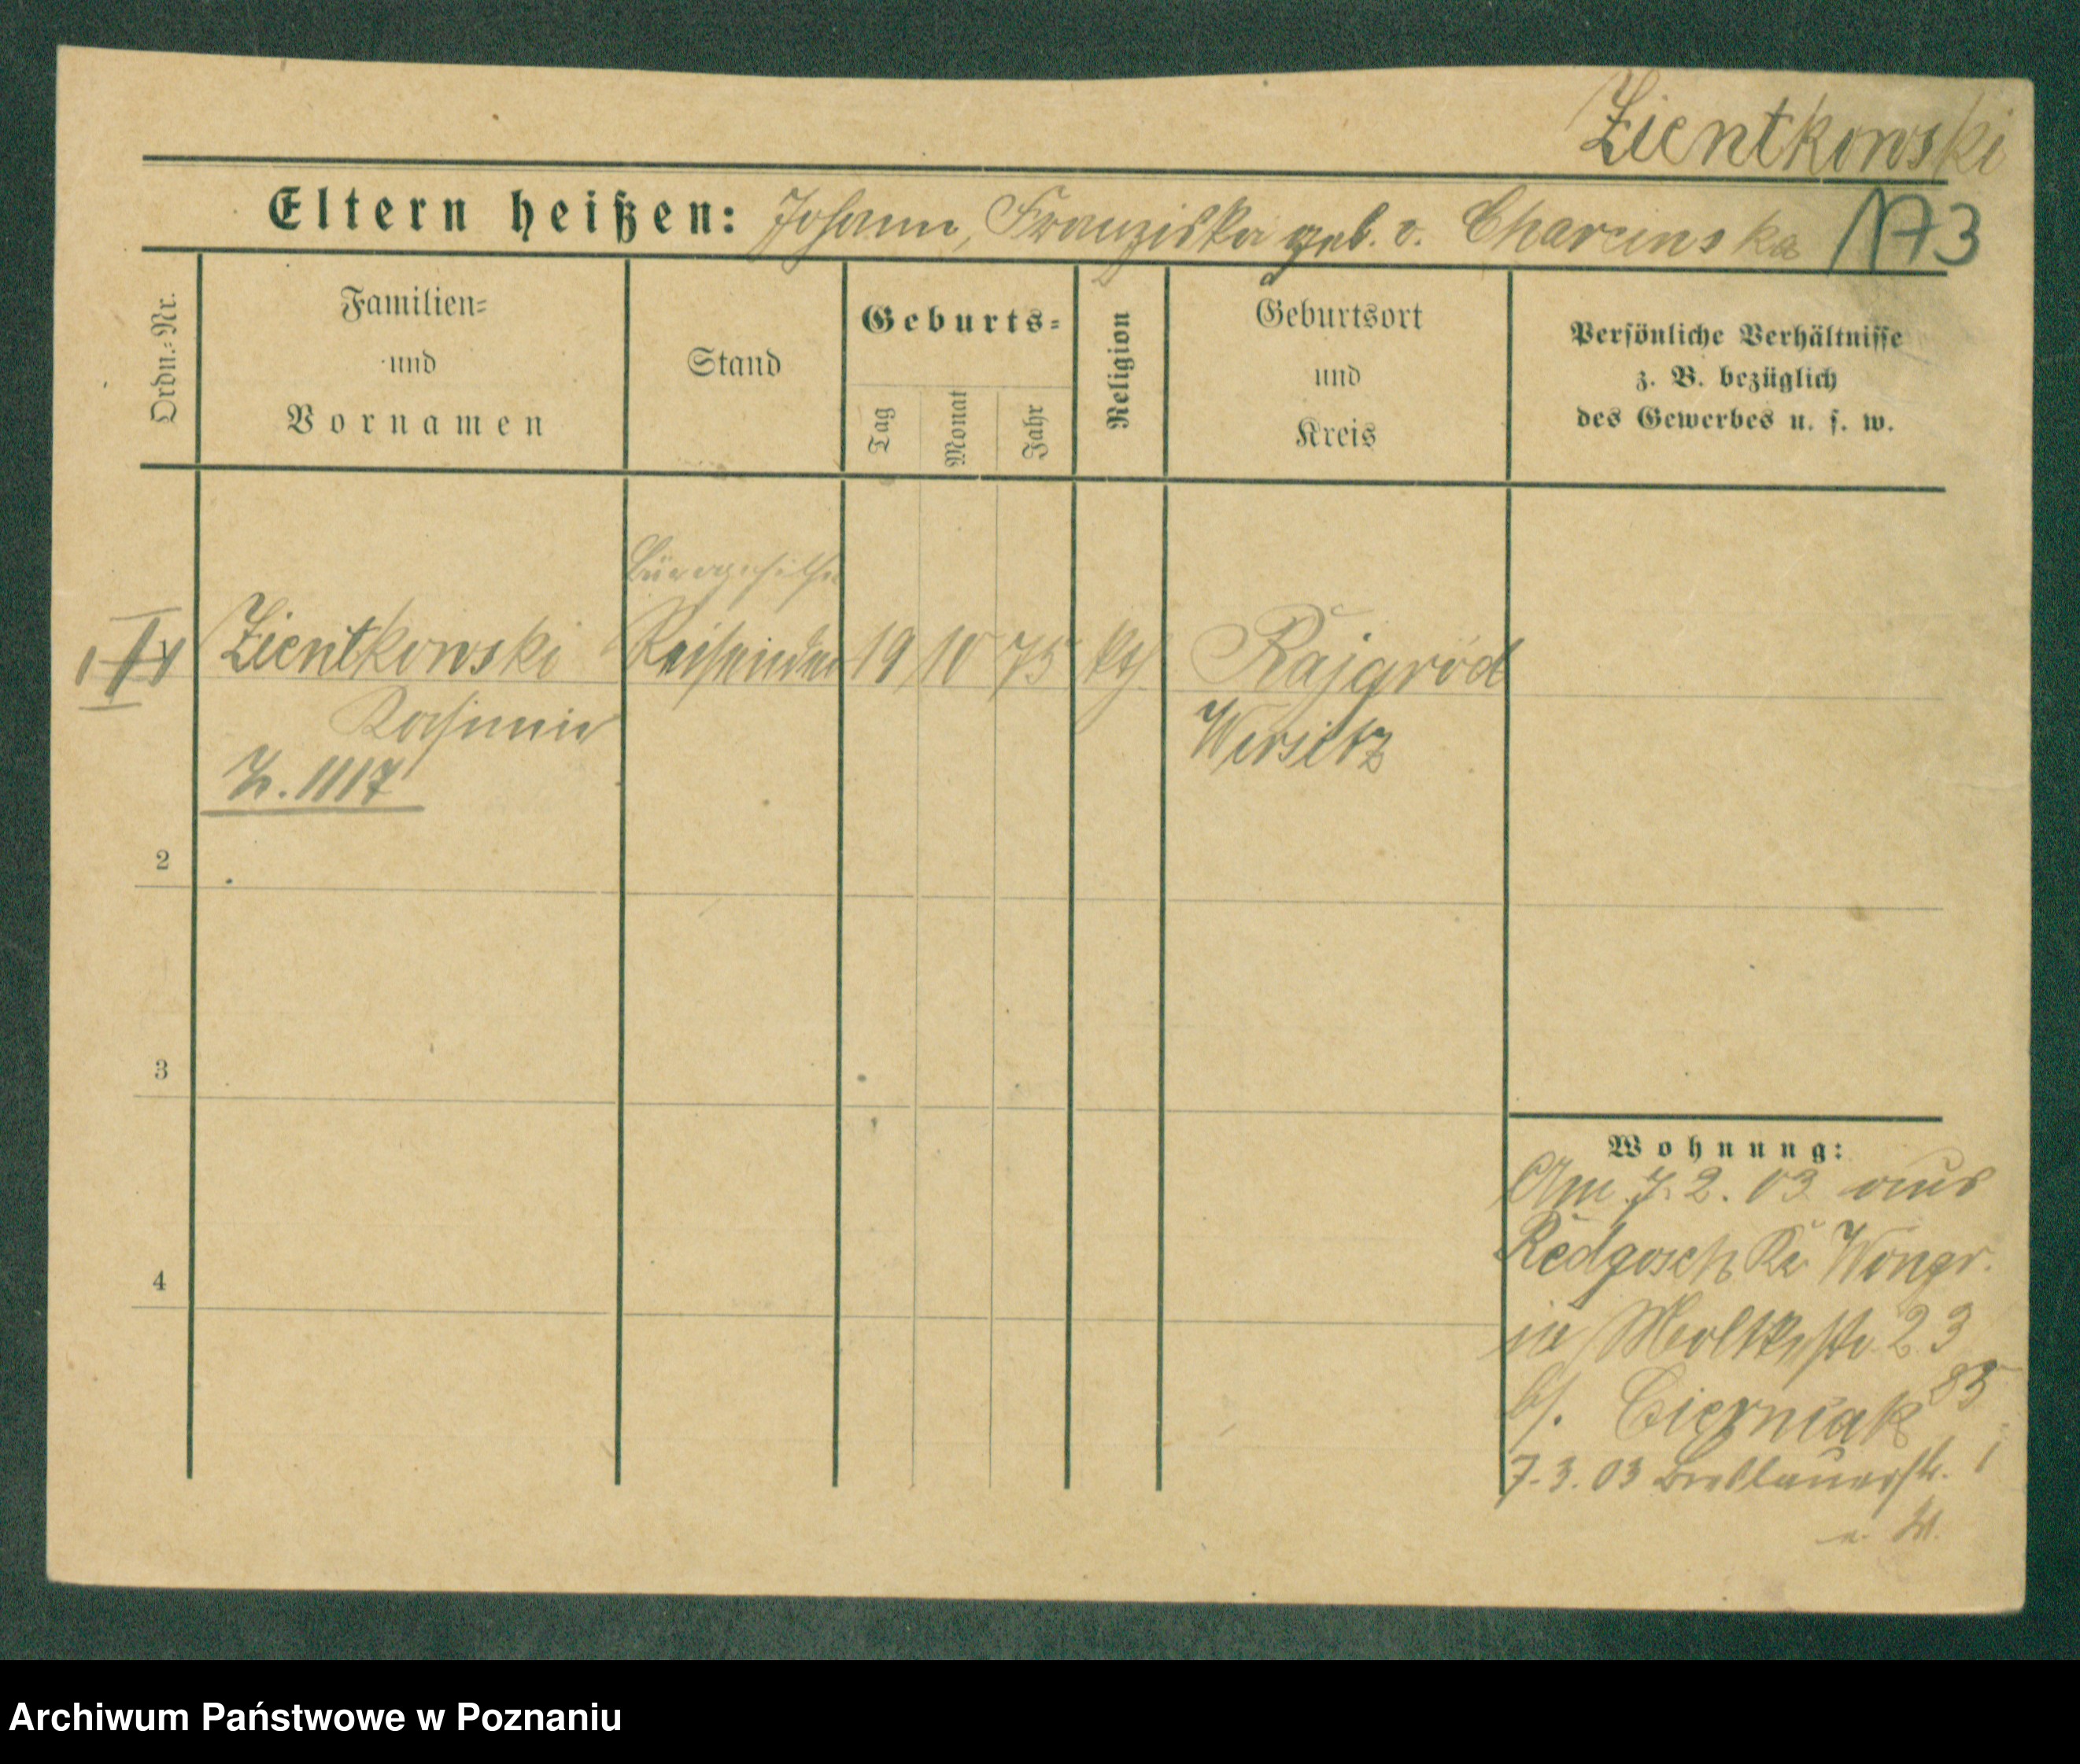 Zientkowski
Eltern heißen: Johann, Franziska geb. v. Charcinska 1173
Ordn.-Nr.
Familien-
und
Vornamen
Stand
Geburts-
Tag
Monat
Jahr
Religion
Geburtsort
und
Kreis
Persönliche Verhältnisse
z. B. bezüglich
des Gewerbes u. s. w.
Bürogehilfe
Zientkowski Reisender 19 10 75 kth Rajgród
Kasimir Wirsitz
Z. 1117
2
3
4
Wohnung:
Am 7. 2. 03 aus
Redgosch Kr Wongr.
in Moltkestr 23
b/. Cierniak 85
7. 3. 03 Breslauerstr.
Archiwum Państwowe w Poznaniu